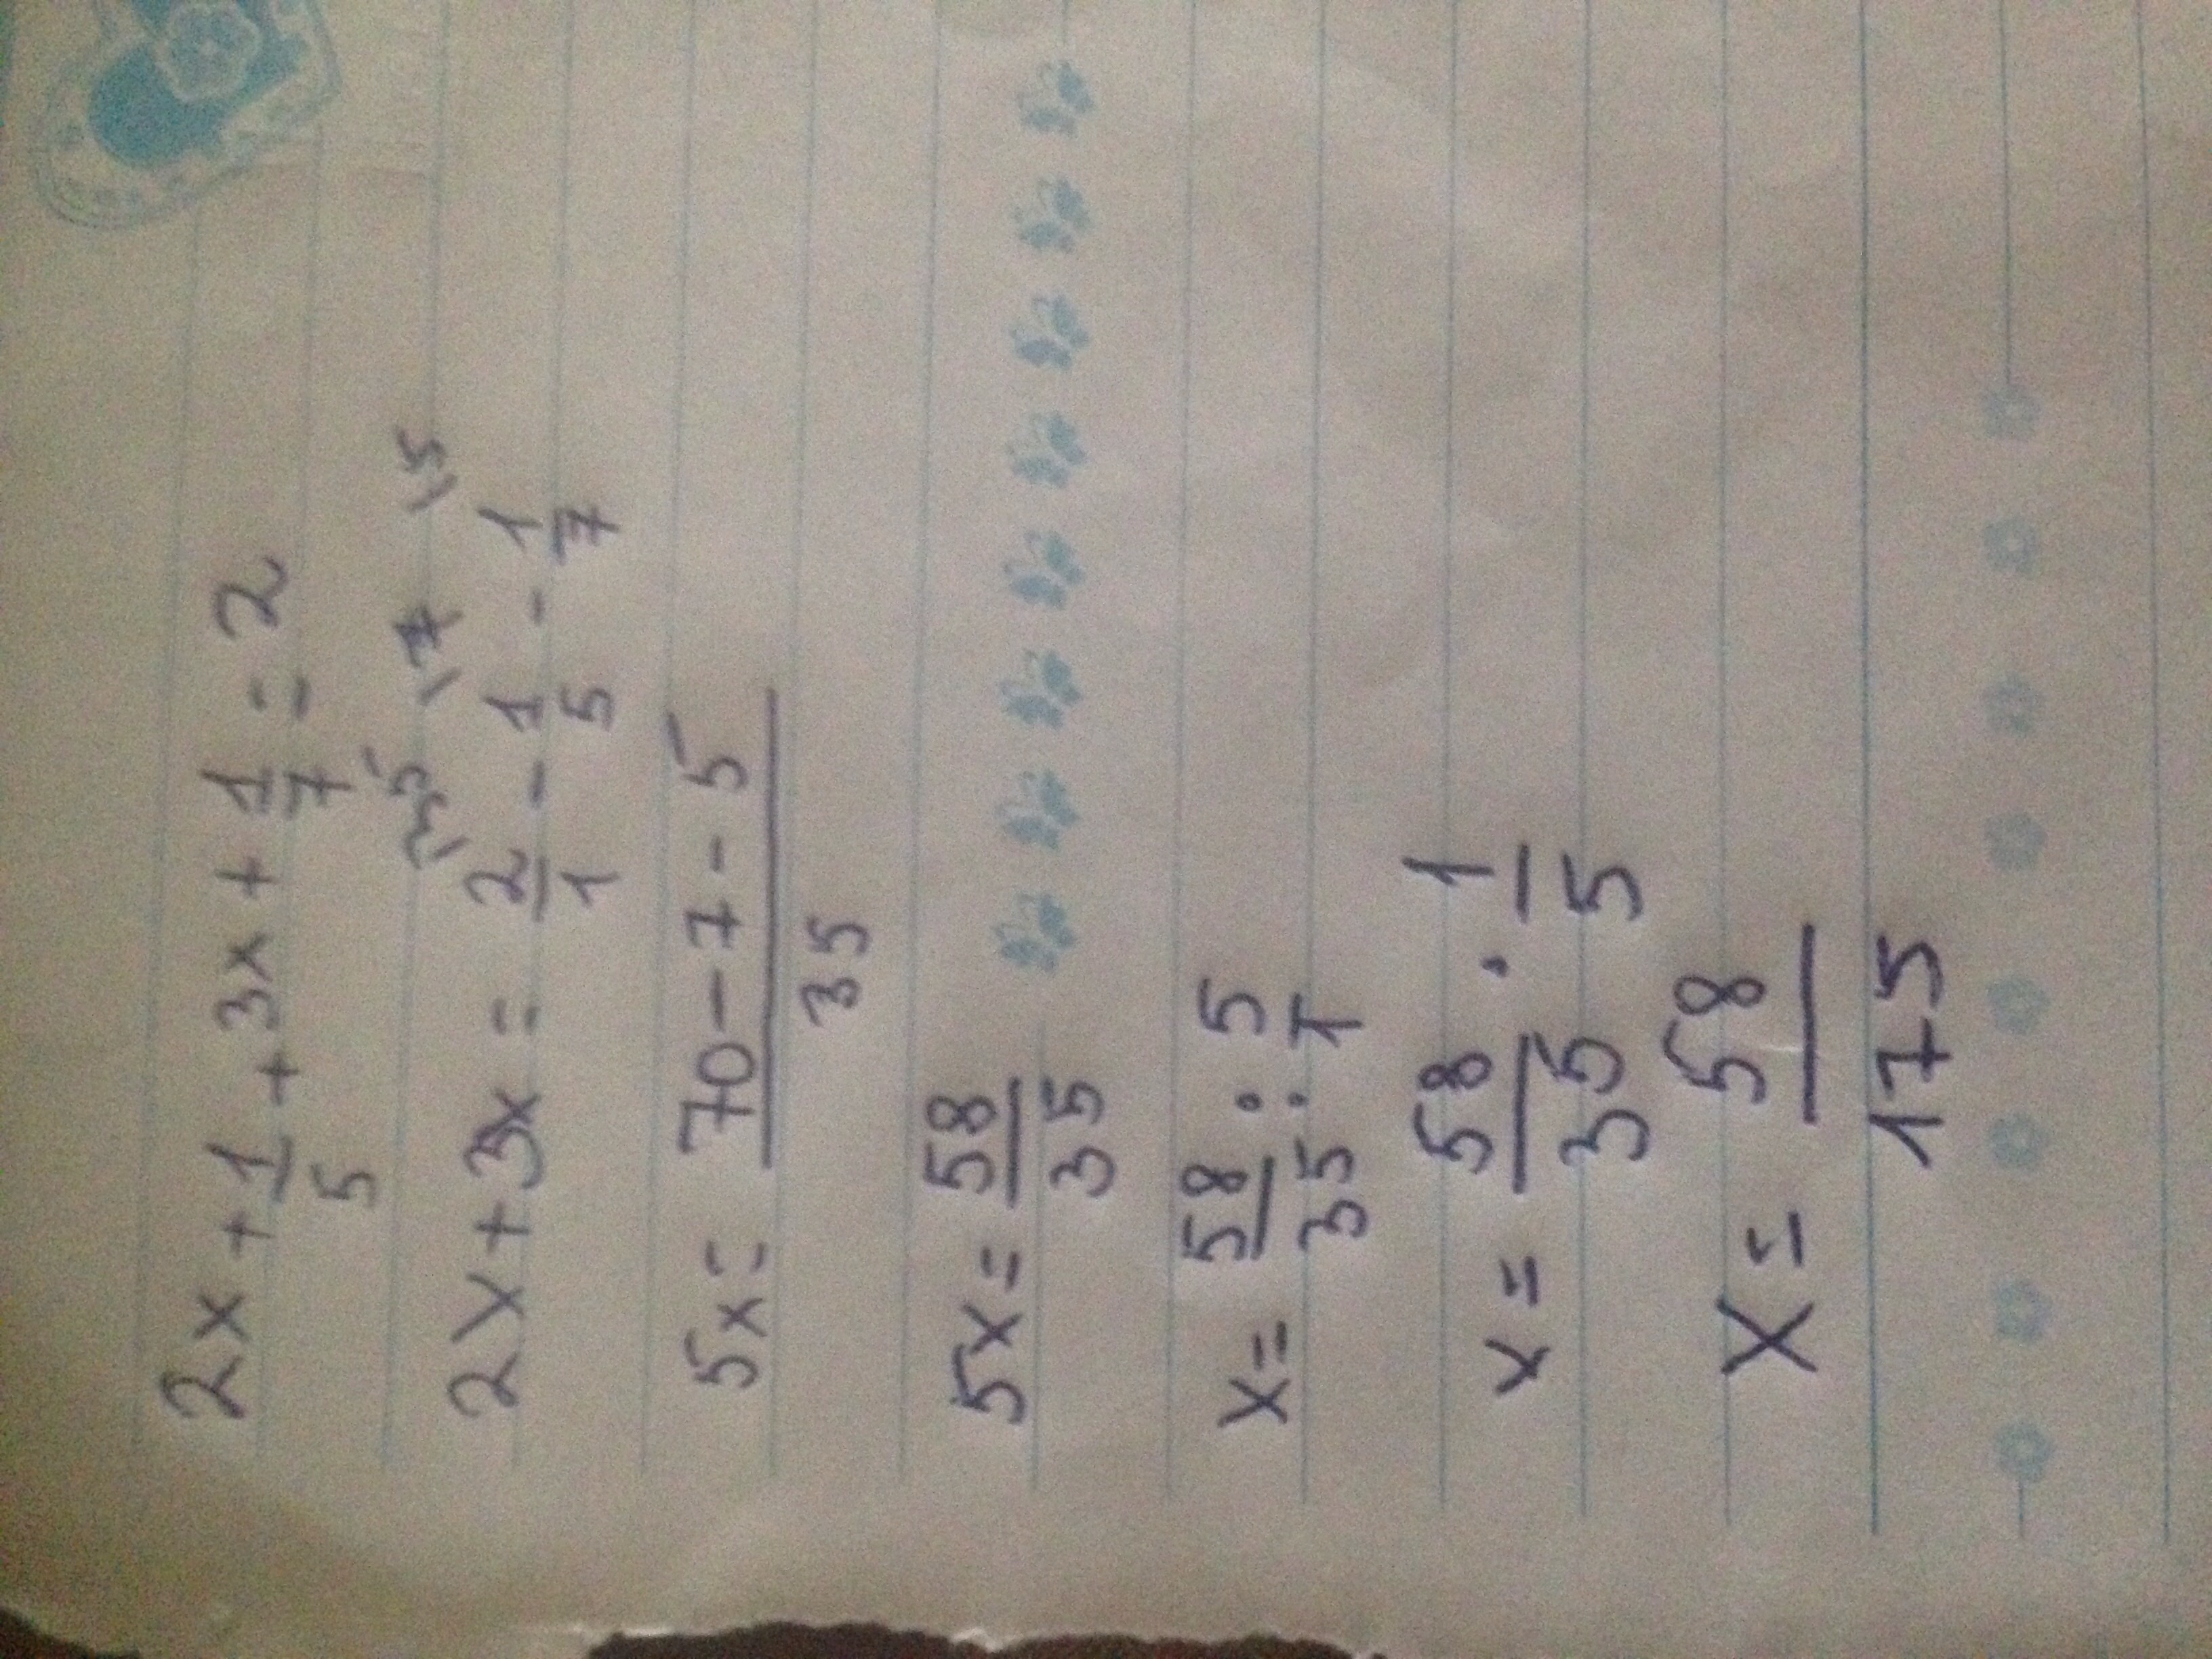 2x + 1/5 + 3x + 1/7 = 2
\35 \7 \5
2x + 3x = 2/1 - 1/5 - 1/7
5x = 70 - 7 - 5 / 35
5x = 58/35
x = 58/35 : 5/1
x = 58/35 · 1/5
x = 58/175